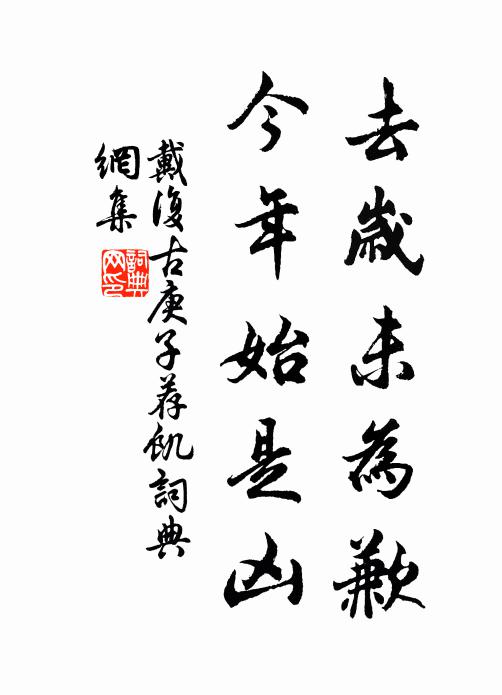 去歲未為歉
今年始是凶
戴復古庚子荐飢詞典
網集
詞典
网印